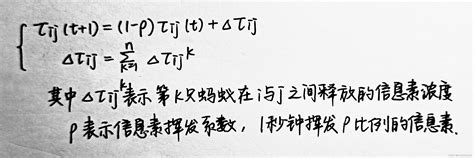 τij(t+1)=(1-ρ)τij(t)+△τij
△τij=∑ⁿₖ₌₁ △τijᵏ
其中△τijᵏ表示第k只蚂蚁在i与j之间释放的信息素浓度
ρ表示信息素挥发系数，1秒钟挥发ρ比例的信息素.